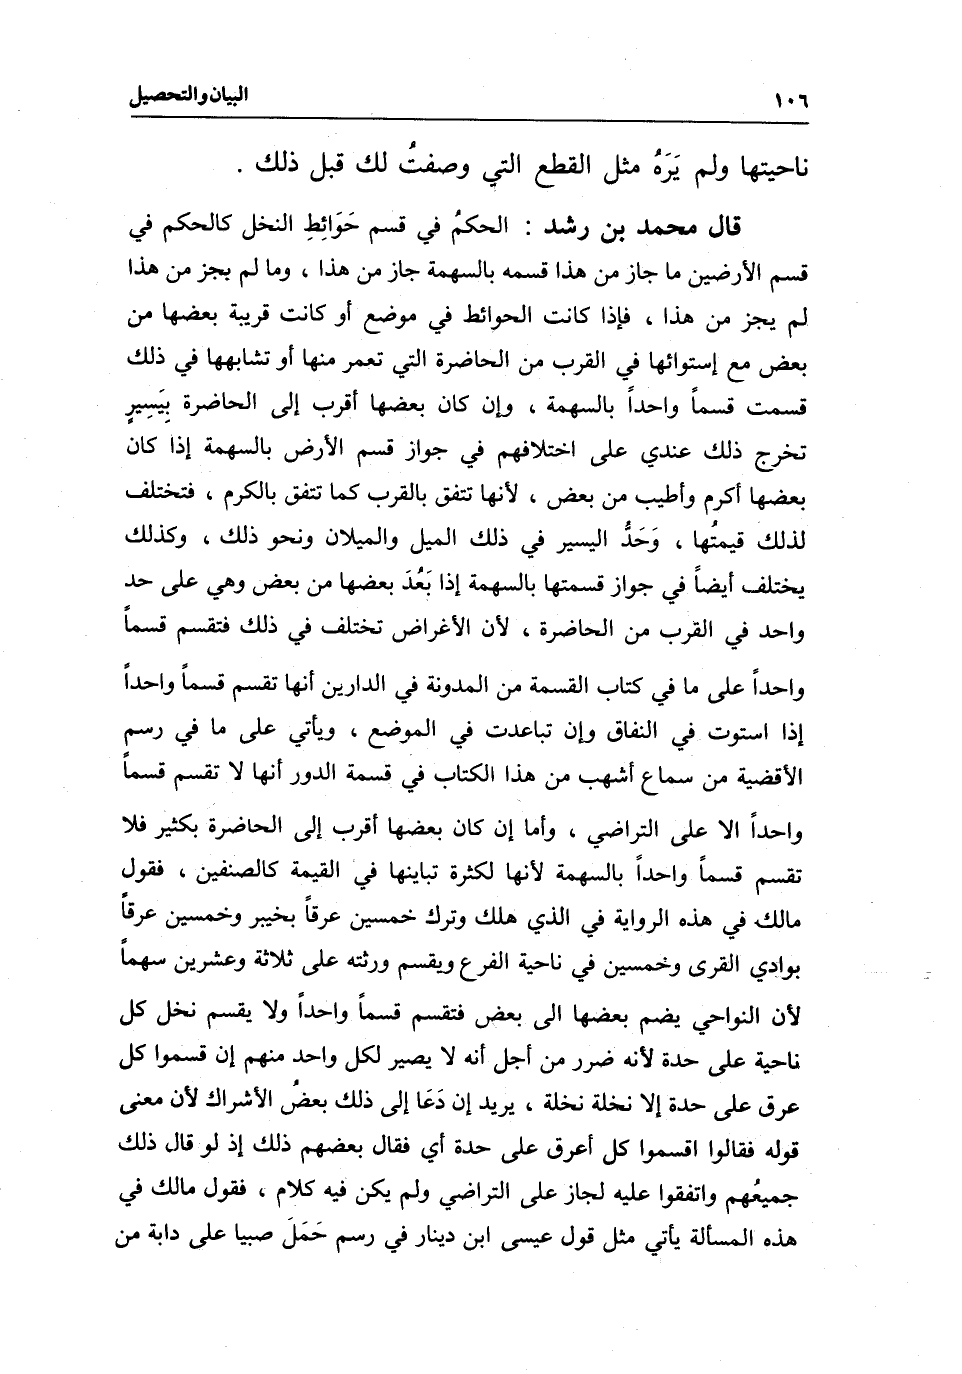 ١٠٦ البيان والتحصيل
ناحيتها ولم يَرَهُ مثل القطع التي وصفتُ لك قبل ذلك .
قال محمد بن رشد : الحكمُ في قسم حَوَائِطِ النخل كالحكم في
قسم الأرضين ما جاز من هذا قسمه بالسهمة جاز من هذا ، وما لم يجز من هذا
لم يجز من هذا ، فإذا كانت الحوائط في موضع أو كانت قريبة بعضها من
بعض مع إستوائها في القرب من الحاضرة التي تعمر منها أو تشابهها في ذلك
قسمت قسماً واحداً بالسهمة ، وإن كان بعضها أقرب إلى الحاضرة بِيَسِيرٍ
تخرج ذلك عندي على اختلافهم في جواز قسم الأرض بالسهمة إذا كان
بعضها أكرم وأطيب من بعض ، لأنها تتفق بالقرب كما تتفق بالكرم ، فتختلف
لذلك قيمتُها ، وَحَدُّ اليسير في ذلك الميل والميلان ونحو ذلك ، وكذلك
يختلف أيضاً في جواز قسمتها بالسهمة إذا بَعُدَ بعضها من بعض وهي على حد
واحد في القرب من الحاضرة ، لأن الأغراض تختلف في ذلك فتقسم قسماً
واحداً على ما في كتاب القسمة من المدونة في الدارين أنها تقسم قسماً واحداً
إذا استوت في النفاق وإن تباعدت في الموضع ، ويأتي على ما في رسم
الأقضية من سماع أشهب من هذا الكتاب في قسمة الدور أنها لا تقسم قسماً
واحداً الا على التراضي ، وأما إن كان بعضها أقرب إلى الحاضرة بكثير فلا
تقسم قسماً واحداً بالسهمة لأنها لكثرة تباينها في القيمة كالصنفين ، فقول
مالك في هذه الرواية في الذي هلك وترك خمسين عرقاً بخيبر وخمسين عرقاً
بوادي القرى وخمسين في ناحية الفرع ويقسم ورثته على ثلاثة وعشرين سهماً
لأن النواحي يضم بعضها الى بعض فتقسم قسماً واحداً ولا يقسم نخل كل
ناحية على حدة لأنه ضرر من أجل أنه لا يصير لكل واحد منهم إن قسموا كل
عرق على حدة إلا نخلة نخلة ، يريد إن دَعَا إلى ذلك بعضُ الأشراك لأن معنى
قوله فقالوا اقسموا كل أعرق على حدة أي فقال بعضهم ذلك إذ لو قال ذلك
جميعُهم واتفقوا عليه لجاز على التراضي ولم يكن فيه كلام ، فقول مالك في
هذه المسألة يأتي مثل قول عيسى ابن دينار في رسم حَمَلَ صبيا على دابة من